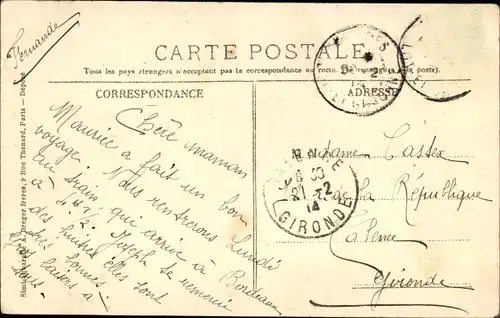 Fernande
CARTE POSTALE
Tous les pays étrangers n'acceptent pas la correspondance au recto. (Se renseigner à la poste).
CORRESPONDANCE
ADRESSE
Chère maman
Maurice a fait un bon
voyage. Nous rentrerons Lundi
au train qui arrive à Bordeaux
à 4 h 1/2. Joseph se remercie
des huîtres elles sont
très bonnes.
Gros baisers à
tous.
Madame Cassex
de la République
Talence
Gironde
8 30
21 -2
14
GIRONDE
A. Breger frères, 9 Rue Thenard, Paris — Déposé